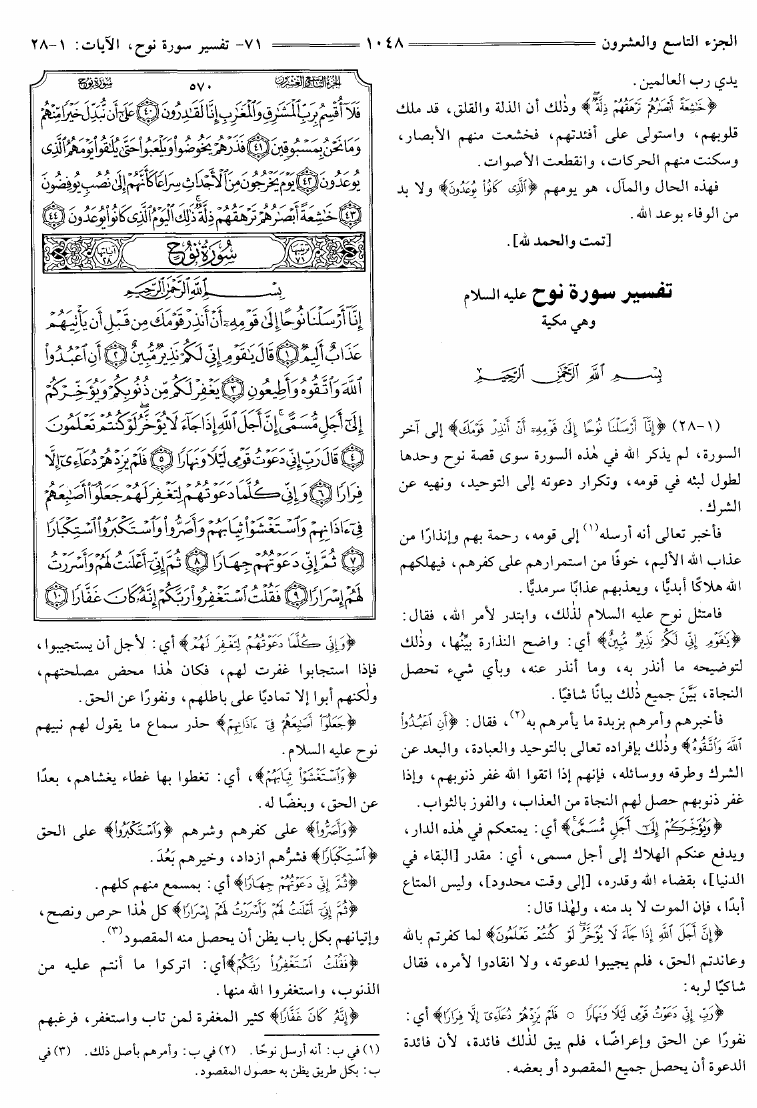 الجزء التاسع والعشرون
١٠٤٨
٧١- تفسير سورة نوح، الآيات: ١-٢٨
يدي رب العالمين.
﴿خَٰشِعَةً أَبْصَٰرُهُمْ تَرْهَقُهُمْ ذِلَّةٌ﴾ وذلك أن الذلة والقلق، قد ملك
قلوبهم، واستولى على أفئدتهم، فخشعت منهم الأبصار،
وسكنت منهم الحركات، وانقطعت الأصوات.
فهذه الحال والمآل، هو يومهم ﴿الَّذِي كَانُوا يُوعَدُونَ﴾ ولا بد
من الوفاء بوعد الله.
[تمت والحمد لله].
تفسير سورة نوح عليه السلام
وهي مكية
بِسْمِ اللَّهِ الرَّحْمَٰنِ الرَّحِيمِ
(١-٢٨) ﴿إِنَّا أَرْسَلْنَا نُوحًا إِلَىٰ قَوْمِهِۦٓ أَنْ أَنذِرْ قَوْمَكَ﴾ إلى آخر
السورة، لم يذكر الله في هٰذه السورة سوى قصة نوح وحدها
لطول لبثه في قومه، وتكرار دعوته إلى التوحيد، ونهيه عن
الشرك.
فأخبر تعالى أنه أرسله(١) إلى قومه، رحمة بهم وإنذارًا من
عذاب الله الأليم، خوفًا من استمرارهم على كفرهم، فيهلكهم
الله هلاكًا أبديًّا، ويعذبهم عذابًا سرمديًّا.
فامتثل نوح عليه السلام لذٰلك، وابتدر لأمر الله، فقال:
﴿يَٰقَوْمِ إِنِّي لَكُمْ نَذِيرٌ مُّبِينٌ﴾ أي: واضح النذارة بيِّنُها، وذٰلك
لتوضيحه ما أنذر به، وما أنذر عنه، وبأي شيء تحصل
النجاة، بَيَّنَ جميع ذٰلك بيانًا شافيًا.
فأخبرهم وأمرهم بزبدة ما يأمرهم به(٢)، فقال: ﴿أَنِ اعْبُدُوا
اللَّهَ وَاتَّقُوهُ﴾ وذٰلك بإفراده تعالى بالتوحيد والعبادة، والبعد عن
الشرك وطرقه ووسائله، فإنهم إذا اتقوا الله غفر ذنوبهم، وإذا
غفر ذنوبهم حصل لهم النجاة من العذاب، والفوز بالثواب.
﴿وَيُؤَخِّرْكُمْ إِلَىٰٓ أَجَلٍ مُّسَمًّى﴾ أي: يمتعكم في هٰذه الدار،
ويدفع عنكم الهلاك إلى أجل مسمى، أي: مقدر [البقاء في
الدنيا]، بقضاء الله وقدره، [إلى وقت محدود]، وليس المتاع
أبدًا، فإن الموت لا بد منه، ولهٰذا قال:
﴿إِنَّ أَجَلَ اللَّهِ إِذَا جَاءَ لَا يُؤَخَّرُ لَوْ كُنتُمْ تَعْلَمُونَ﴾ لما كفرتم بالله
وعاندتم الحق، فلم يجيبوا لدعوته، ولا انقادوا لأمره، فقال
شاكيًا لربه:
﴿رَبِّ إِنِّي دَعَوْتُ قَوْمِي لَيْلًا وَنَهَارًا ○ فَلَمْ يَزِدْهُمْ دُعَاءِي إِلَّا فِرَارًا﴾ أي:
نفورًا عن الحق وإعراضًا، فلم يبق لذٰلك فائدة، لأن فائدة
الدعوة أن يحصل جميع المقصود أو بعضه.
الجزء التاسع والعشرون ٥٧٠ سورة نوح
فَلَا أُقْسِمُ بِرَبِّ الْمَشَارِقِ وَالْمَغَارِبِ إِنَّا لَقَادِرُونَ ۝٤٠ عَلَىٰ أَن نُّبَدِّلَ خَيْرًا مِّنْهُمْ
وَمَا نَحْنُ بِمَسْبُوقِينَ ۝٤١ فَذَرْهُمْ يَخُوضُوا وَيَلْعَبُوا حَتَّىٰ يُلَاقُوا يَوْمَهُمُ الَّذِي
يُوعَدُونَ ۝٤٢ يَوْمَ يَخْرُجُونَ مِنَ الْأَجْدَاثِ سِرَاعًا كَأَنَّهُمْ إِلَىٰ نُصُبٍ يُوفِضُونَ
۝٤٣ خَاشِعَةً أَبْصَارُهُمْ تَرْهَقُهُمْ ذِلَّةٌ ذَٰلِكَ الْيَوْمُ الَّذِي كَانُوا يُوعَدُونَ ۝٤٤
ترتيبها ٧١ سُورَةُ نُوحٍ آياتها ٢٨
بِسْمِ اللَّهِ الرَّحْمَٰنِ الرَّحِيمِ
إِنَّا أَرْسَلْنَا نُوحًا إِلَىٰ قَوْمِهِ أَنْ أَنذِرْ قَوْمَكَ مِن قَبْلِ أَن يَأْتِيَهُمْ
عَذَابٌ أَلِيمٌ ۝١ قَالَ يَا قَوْمِ إِنِّي لَكُمْ نَذِيرٌ مُّبِينٌ ۝٢ أَنِ اعْبُدُوا
اللَّهَ وَاتَّقُوهُ وَأَطِيعُونِ ۝٣ يَغْفِرْ لَكُم مِّن ذُنُوبِكُمْ وَيُؤَخِّرْكُمْ
إِلَىٰ أَجَلٍ مُّسَمًّى إِنَّ أَجَلَ اللَّهِ إِذَا جَاءَ لَا يُؤَخَّرُ لَوْ كُنتُمْ تَعْلَمُونَ
۝٤ قَالَ رَبِّ إِنِّي دَعَوْتُ قَوْمِي لَيْلًا وَنَهَارًا ۝٥ فَلَمْ يَزِدْهُمْ دُعَاءِي إِلَّا
فِرَارًا ۝٦ وَإِنِّي كُلَّمَا دَعَوْتُهُمْ لِتَغْفِرَ لَهُمْ جَعَلُوا أَصَابِعَهُمْ
فِي آذَانِهِمْ وَاسْتَغْشَوْا ثِيَابَهُمْ وَأَصَرُّوا وَاسْتَكْبَرُوا اسْتِكْبَارًا
۝٧ ثُمَّ إِنِّي دَعَوْتُهُمْ جِهَارًا ۝٨ ثُمَّ إِنِّي أَعْلَنتُ لَهُمْ وَأَسْرَرْتُ
لَهُمْ إِسْرَارًا ۝٩ فَقُلْتُ اسْتَغْفِرُوا رَبَّكُمْ إِنَّهُ كَانَ غَفَّارًا ۝١٠
﴿وَإِنِّي كُلَّمَا دَعَوْتُهُمْ لِتَغْفِرَ لَهُمْ﴾ أي: لأجل أن يستجيبوا،
فإذا استجابوا غفرت لهم، فكان هٰذا محض مصلحتهم،
ولٰكنهم أبوا إلا تماديًا على باطلهم، ونفورًا عن الحق.
﴿جَعَلُوا أَصَابِعَهُمْ فِي آذَانِهِمْ﴾ حذر سماع ما يقول لهم نبيهم
نوح عليه السلام.
﴿وَاسْتَغْشَوْا ثِيَابَهُمْ﴾، أي: تغطوا بها غطاء يغشاهم، بعدًا
عن الحق، وبغضًا له.
﴿وَأَصَرُّوا﴾ على كفرهم وشرهم ﴿وَاسْتَكْبَرُوا﴾ على الحق
﴿اسْتِكْبَارًا﴾ فشرُّهم ازداد، وخيرهم بَعُدَ.
﴿ثُمَّ إِنِّي دَعَوْتُهُمْ جِهَارًا﴾ أي: بمسمع منهم كلهم.
﴿ثُمَّ إِنِّي أَعْلَنتُ لَهُمْ وَأَسْرَرْتُ لَهُمْ إِسْرَارًا﴾ كل هٰذا حرص ونصح،
وإتيانهم بكل باب يظن أن يحصل منه المقصود(٣).
﴿فَقُلْتُ اسْتَغْفِرُوا رَبَّكُمْ﴾ أي: اتركوا ما أنتم عليه من
الذنوب، واستغفروا الله منها.
﴿إِنَّهُ كَانَ غَفَّارًا﴾ كثير المغفرة لمن تاب واستغفر، فرغبهم
(١) في ب: أنه أرسل نوحًا. (٢) في ب: وأمرهم بأصل ذلك. (٣) في
ب: بكل طريق يظن به حصول المقصود.